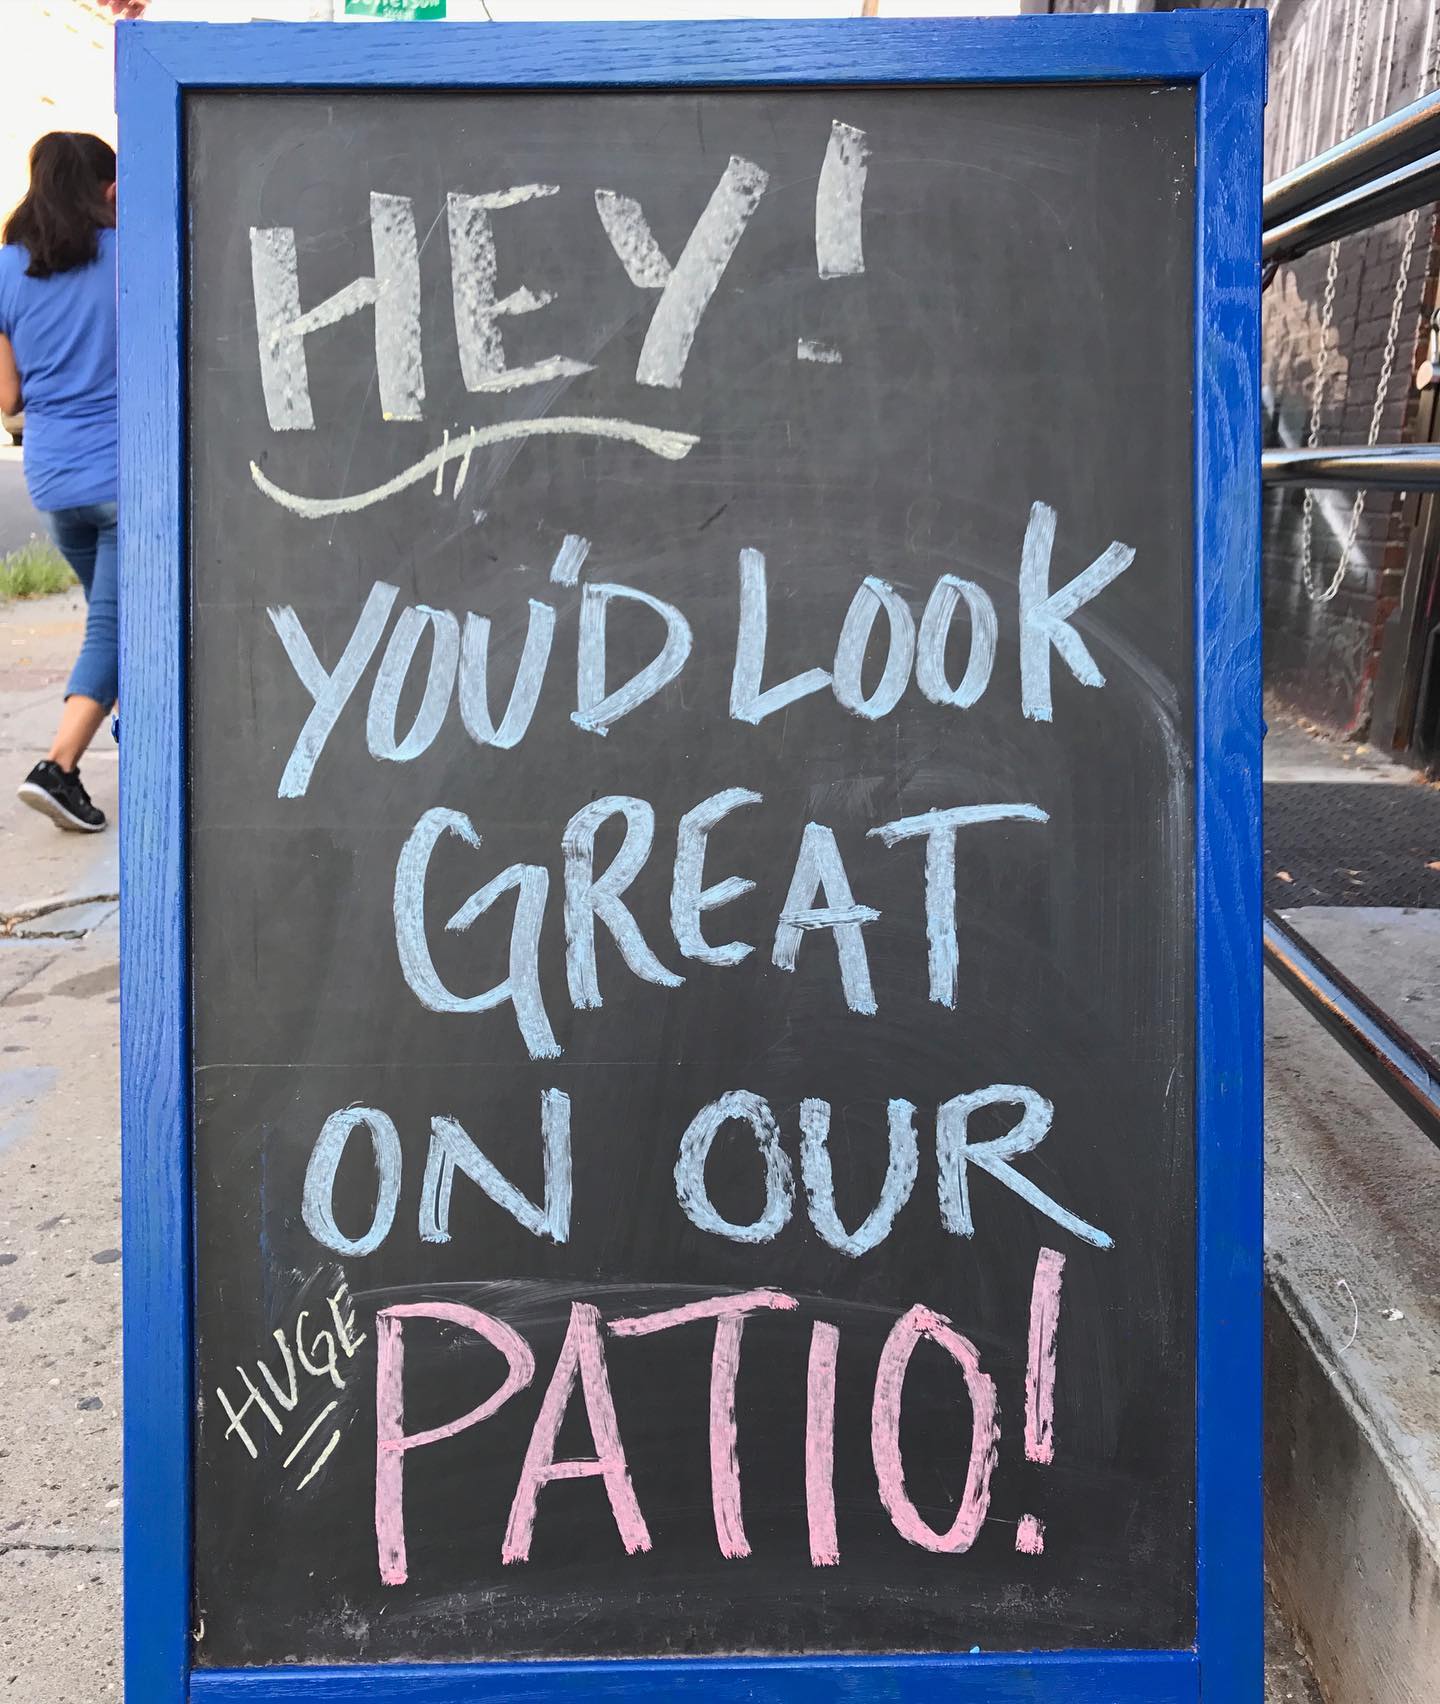 Jefferson
STREET
HEY!
YOU'D LOOK
GREAT
ON OUR
HUGE PATIO!